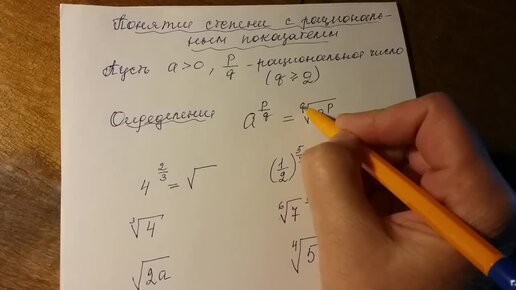 Понятие степени с рациональ-
ным показателем
Пусть a>0, p/q - рациональное число
(q ⩾ 2)
Определение a^(p/q) = ᑫ√a^p
4^(2/3) = √
∛4
√2a
(1/2)^5
⁶√7
⁴√5